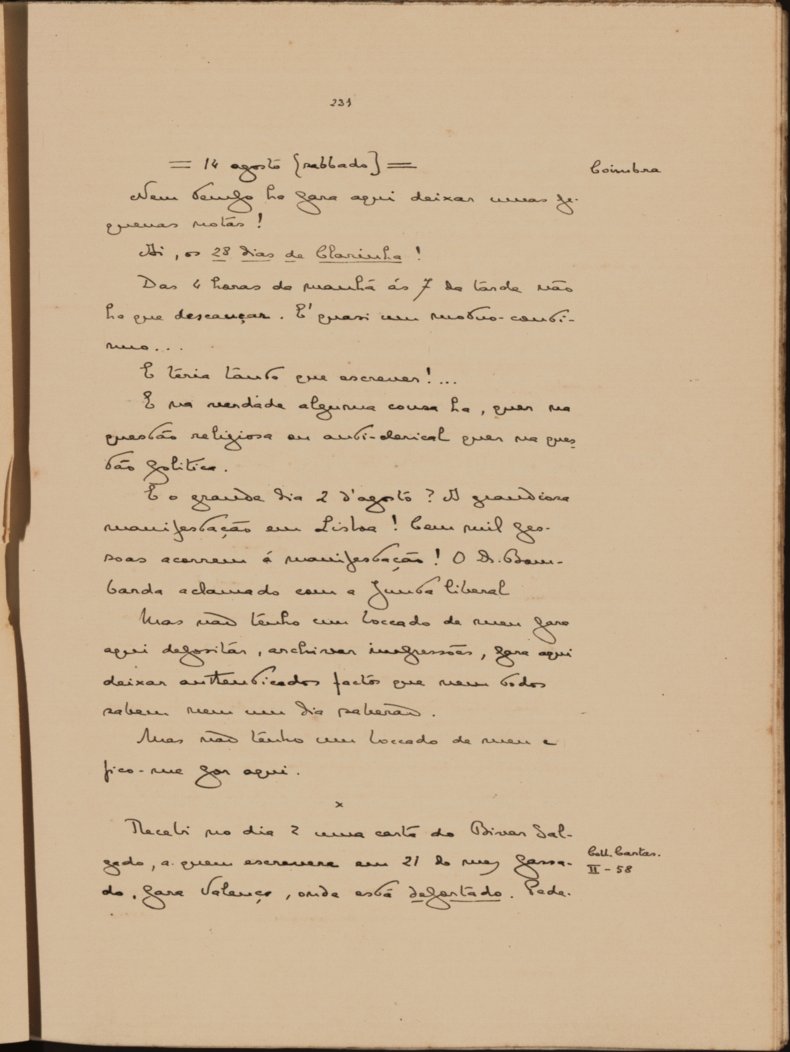 231
= 14 agosto [sabbado] =
Coimbra
Nem tempo ha para aqui deixar umas pe-
quenas notas!
Ai, os 28 dias de Clarinha!
Das 4 horas da manhã ás 7 da tarde não
ha que descançar. É quasi um motuo-conti-
nuo...
E teria tanto que escrever!...
E na verdade alguma cousa ha, quer na
questão religiosa ou anti-clerical quer na ques
tão politica.
E o grande dia 2 d'agosto? A grandiosa
manifestação em Lisboa! Cem mil pes-
soas acorrem á manifestação! O Dr. Bom-
barda aclamado com a Junta liberal
Mas não tenho um boccado de meu para
aqui depositar, archivar impressões, para aqui
deixar authenticados factos que nem todos
sabem nem um dia saberão.
Mas não tenho um boccado de meu e
fico-me por aqui.
x
Recebi no dia 2 uma carta do Bivar Sal-
gado, a quem escrevera em 21 do mez passa-
do, para Valença, onde está deportado. Pede-
Coll. Cartas.
II - 58